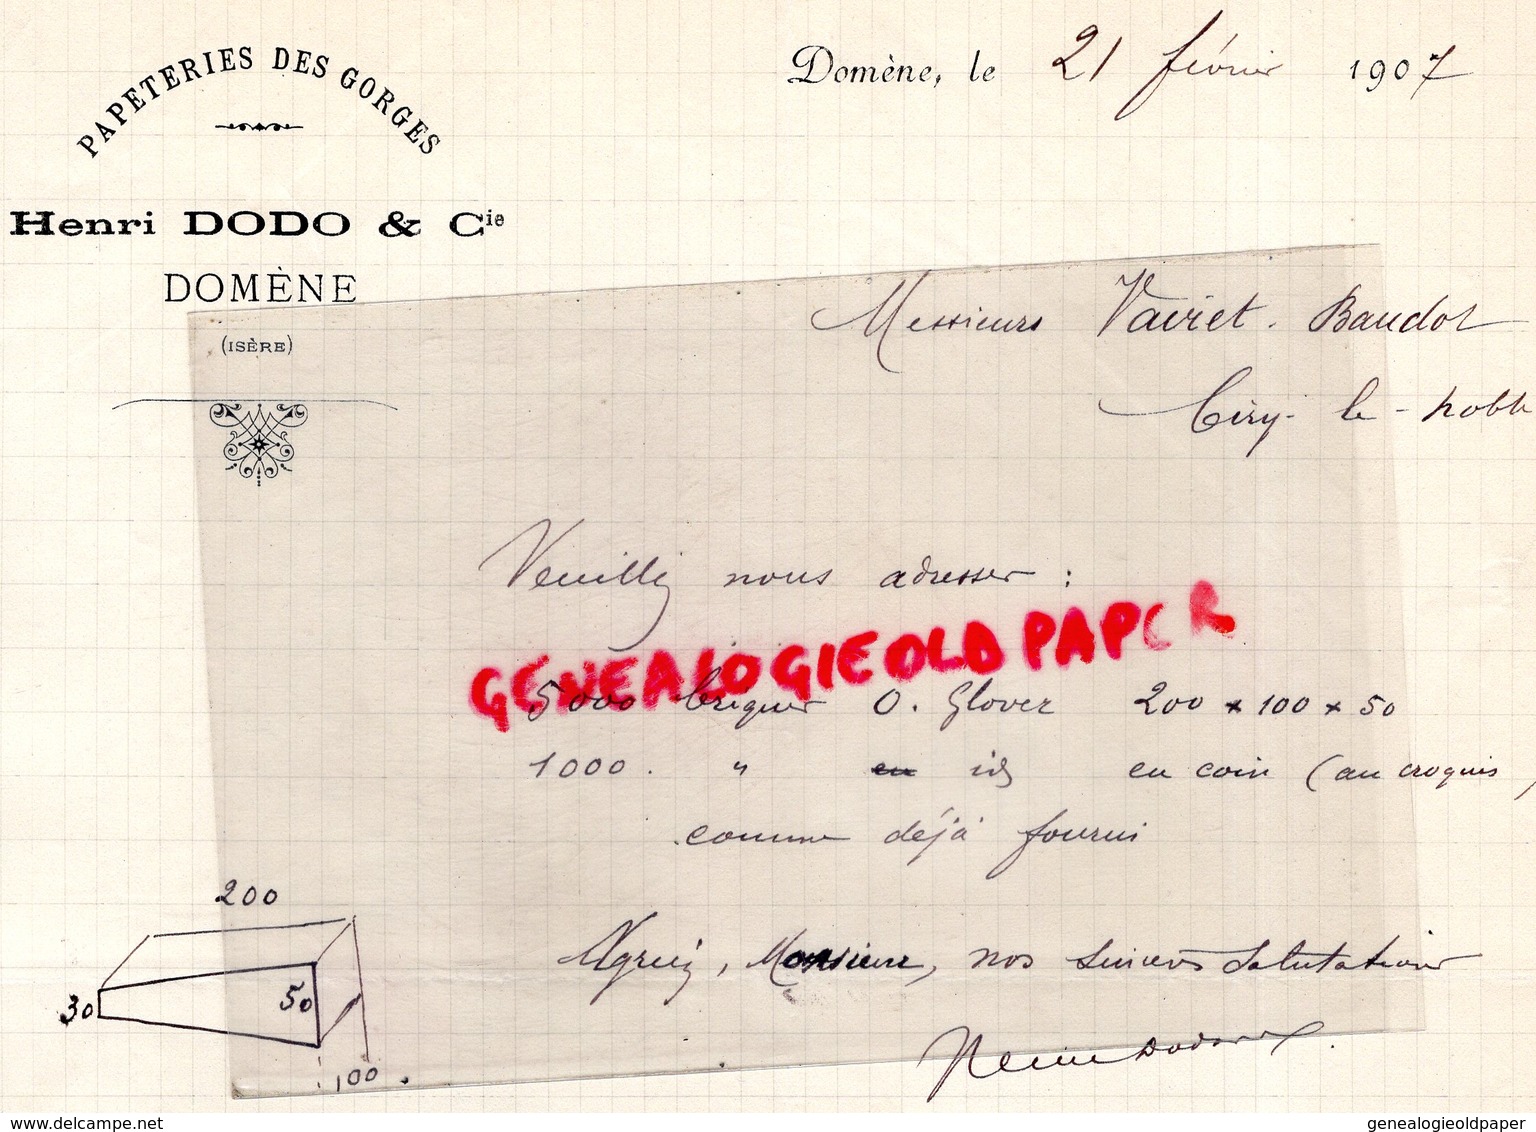 PAPETERIES DES GORGES
Henri DODO & Cie
DOMÈNE
(ISÈRE)
Domène, le 21 février 1907
Messieurs Vairet-Baudot
Ciry-le-noble
Veuillez nous adresser :
GENEALOGIEOLD PAPER
5000 briques O. Glover 200 x 100 x 50
1000. " en id en coin (au croquis)
comme déjà fourni
200
30
50
100
Agréez, Monsieur, nos sincères salutations
Henri Dodo
delcampe.net
genealogieoldpaper